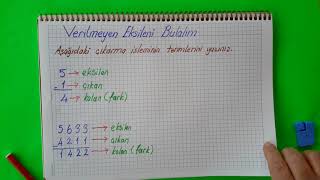 Verilmeyen Eksileni Bulalım
Aşağıdaki çıkarma işleminin terimlerini yazınız.
5 → eksilen
- 1 → çıkan
4 → kalan (fark)
5 6 3 3 → eksilen
- 4 2 1 1 → çıkan
1 4 2 2 → kalan (fark)